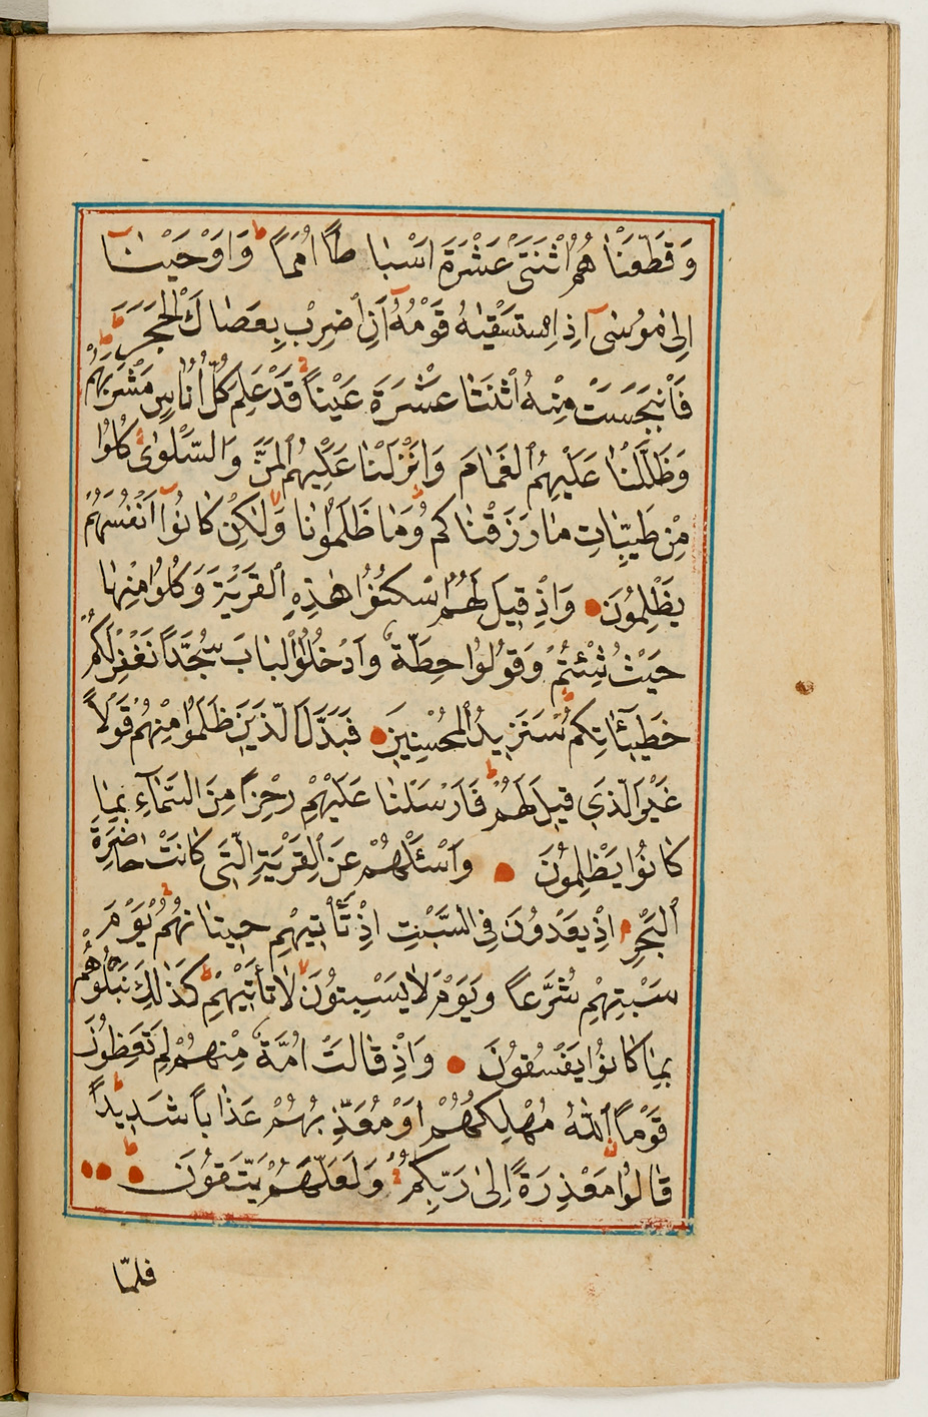 وَقَطَّعْنَا هُمُ اثْنَتَىْ عَشْرَةَ اَسْبَا طًا اُمَمًا وَاَوْحَيْنَآ
اِلٰى مُوسٰىٓ اِذِ اسْتَسْقٰيهُ قَوْمُهُٓ اَنِ اضْرِبْ بِعَصَاكَ الْحَجَرَ
فَانْبَجَسَتْ مِنْهُ اثْنَتَا عَشْرَةَ عَيْنًا قَدْ عَلِمَ كُلُّ اُنَاسٍ مَشْرَبَهُمْ
وَظَلَّلْنَا عَلَيْهِمُ الْغَمَامَ وَاَنْزَلْنَا عَلَيْهِمُ الْمَنَّ وَالسَّلْوٰى كُلُوا
مِنْ طَيِّبَاتِ مَا رَزَقْنَاكُمْ وَمَا ظَلَمُونَا وَلٰكِنْ كَانُوٓا اَنْفُسَهُمْ
يَظْلِمُونَ وَاِذْ قِيلَ لَهُمُ اسْكُنُوا هٰذِهِ الْقَرْيَةَ وَكُلُوا مِنْهَا
حَيْثُ شِئْتُمْ وَقُولُوا حِطَّةٌ وَادْخُلُوا الْبَابَ سُجَّدًا نَغْفِرْ لَكُمْ
خَطِيٓـَٔاتِكُمْ سَنَزِيدُ الْمُحْسِنِينَ فَبَدَّلَ الَّذِينَ ظَلَمُوا مِنْهُمْ قَوْلًا
غَيْرَ الَّذِي قِيلَ لَهُمْ فَاَرْسَلْنَا عَلَيْهِمْ رِجْزًا مِنَ السَّمَآءِ بِمَا
كَانُوا يَظْلِمُونَ وَاسْئَلْهُمْ عَنِ الْقَرْيَةِ الَّتِي كَانَتْ حَاضِرَةَ
الْبَحْرِ اِذْ يَعْدُونَ فِي السَّبْتِ اِذْ تَأْتِيهِمْ حِيتَانُهُمْ يَوْمَ
سَبْتِهِمْ شُرَّعًا وَيَوْمَ لَا يَسْبِتُونَ لَا تَأْتِيهِمْ كَذٰلِكَ نَبْلُوهُمْ
بِمَا كَانُوا يَفْسُقُونَ وَاِذْ قَالَتْ اُمَّةٌ مِنْهُمْ لِمَ تَعِظُونَ
قَوْمًا اللّٰهُ مُهْلِكُهُمْ اَوْ مُعَذِّبُهُمْ عَذَابًا شَدِيدًا
قَالُوا مَعْذِرَةً اِلٰى رَبِّكُمْ وَلَعَلَّهُمْ يَتَّقُونَ
فلمّا